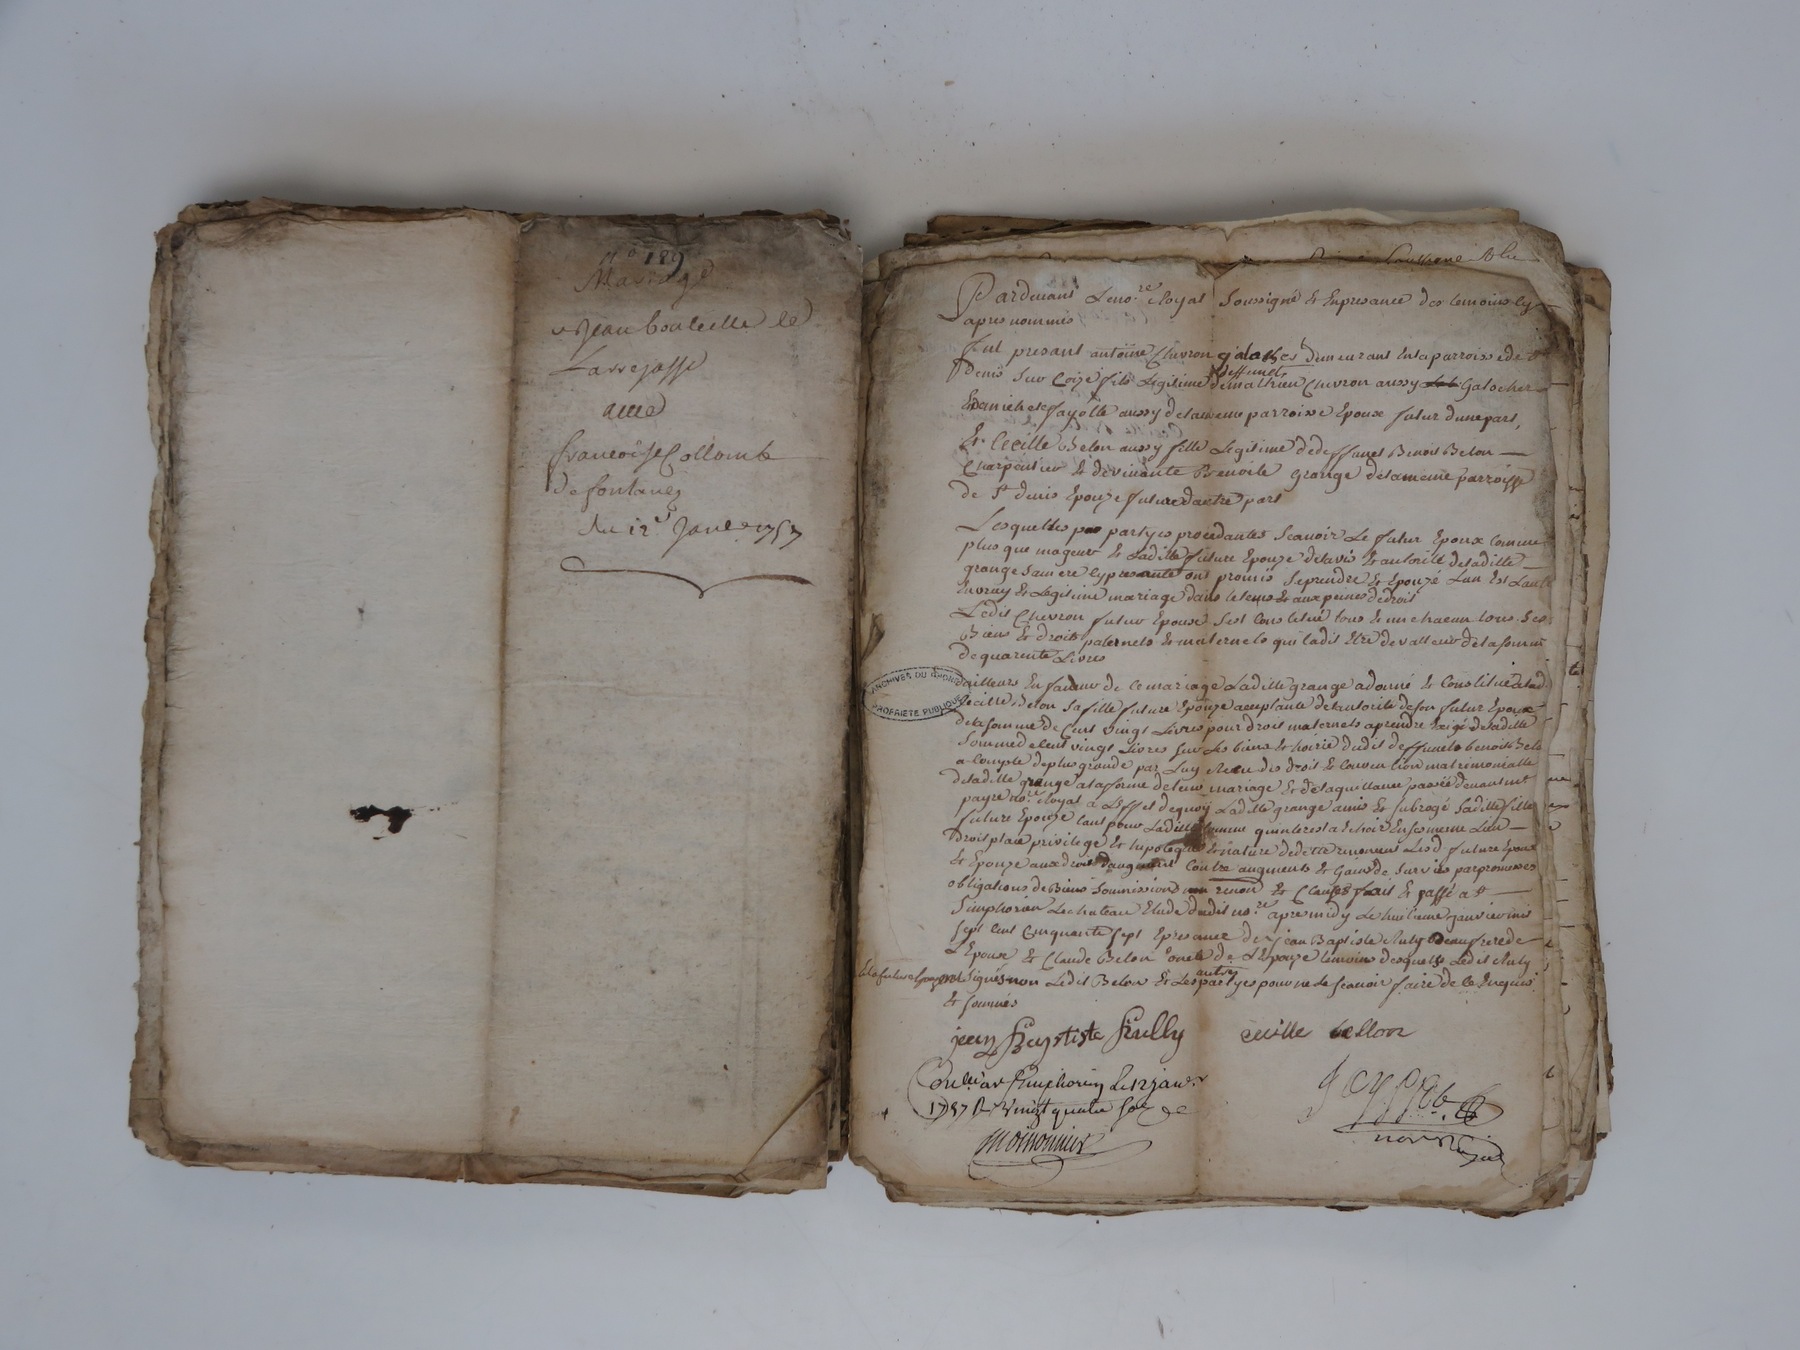 N° 189
Mariage
de Jean bouteille de
Larrajasse
avec
francoise Collomb
de fontanez
du 12e Janer 1757
Pardevant Le no.re Royal Soussigné Et En presance des temoins Cy
apres nommés
fut presant antoine Chevron galoches demeurant En la parroisse de St
denis Sur Coize fils Legitime deffunct de mathieu Chevron aussy galocher
Et aussy de la meme parroisse Epoux futur dune part,
Et Cecille Belon aussy fille Legitime de deffunct Benoit Belon
Charpentier Et de vivante Benoite Grange de la meme parroisse
de St denis Epouze future dautre part
Lesquelles partyes procedantes Scavoir Le futur Epoux Comme
plus que mageur Et Laditte future Epouze de lavis Et autorité de laditte
grange Sa mere Cy presente ont promis Se prendre Et Epouzé Lun Et Lautre
En vray Et Legitime mariage dans le tems Et aux peines de droit
Ledit Chevron futur Epoux Sest Constitué tous Et un chacun tous Ses
Biens Et droits paternels Et maternels quil a dit Etre de valleur de la somme
de quarente Livres
dailleurs En faveur de Ce mariage Laditte grange a donné Et Constitué a lad
Cecille Belon Sa fille future Epouze acceptante de lautorité de son futur Epoux
de la somme de Cent vingt Livres pour droit maternels a prendre Et exigé de laditte
Somme de Cent vingt Livres Sur Les biens Et hoirie dudit deffunct benoit Belon
a Compte de plus grande par Luy Receu des droit Et Convention matrimonialle
de laditte grange a la forme de leur mariage Et de la quittance passée devant
payre no.re Royal a Leffet de quoy Laditte grange a mis Et subrogé Saditte fille
future Epouze tant pour Laditte Somme quinterest a Echoir En Ses meme Lieu
Droit place privilege Et hipoteque Et nature de dette Lesd. future Epoux
Et Epouze aux droits daugment Contre augment Et Gains de Survies par promesses
obligations de Biens Soumissions renon Et Clauses fait Et passé a St
Simphorien Le chateau Etude dudit no.re apres midy Le huitieme janvier mil
Sept Cent Cinquante Sept En presance de Jean Baptiste Beaufrere de
LEpoux Et Claude Belon oncle de LEpouze temoins desquels Ledit
Et la future Epouze ont Signés non Ledit Belon Et Les autres partyes pour ne le Scavoir faire de Ce Enquis
Et Sommés
jean Baptiste cecille bellon
Conllé a St Simphorien Le 12 janv.r
1757 R. Vingt quatre Sols
Moinonnier
ARCHIVES DU RHONE
PROPRIETE PUBLIQUE